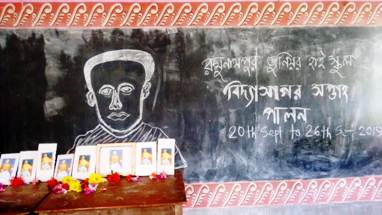 রঘুনাথপুর জুনিয়র হাই স্কুল
বিদ্যাসাগর সপ্তাহ
পালন
20th Sept to 26th Sept 2019